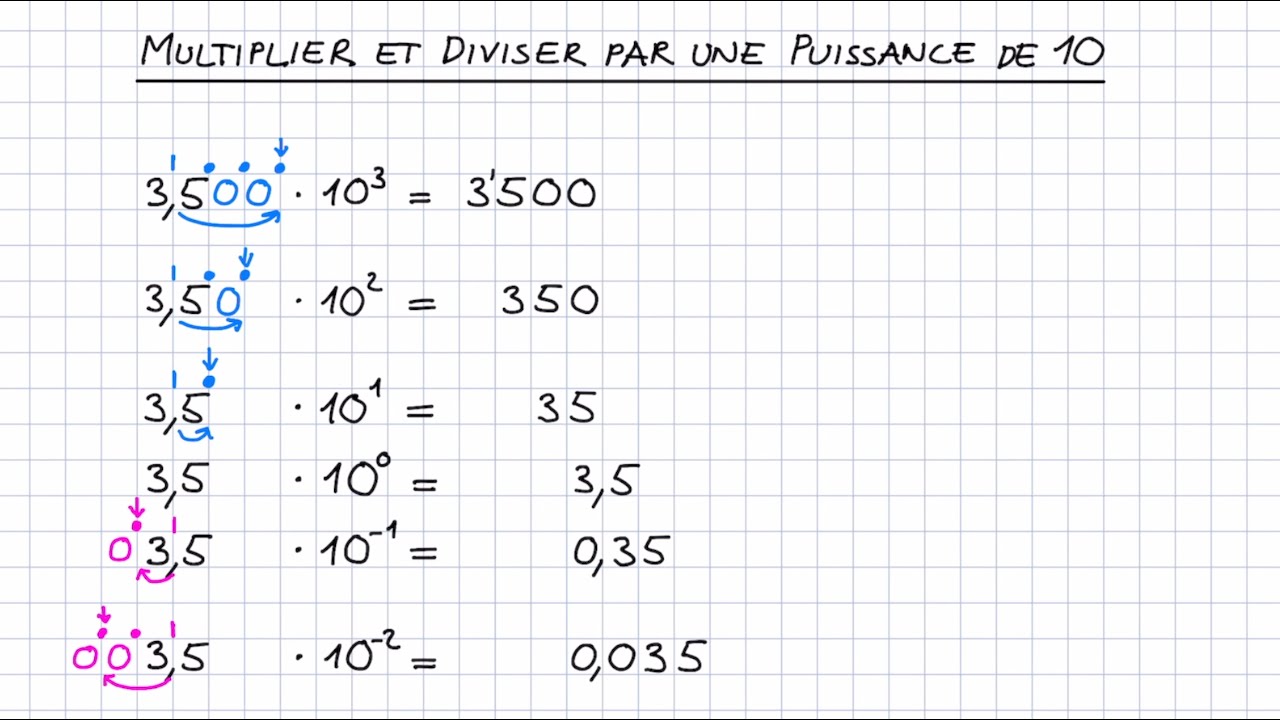 MULTIPLIER ET DIVISER PAR UNE PUISSANCE DE 10
3,500 · 10³ = 3'500
3,50 · 10² = 350
3,5 · 10¹ = 35
3,5 · 10⁰ = 3,5
03,5 · 10⁻¹ = 0,35
003,5 · 10⁻² = 0,035